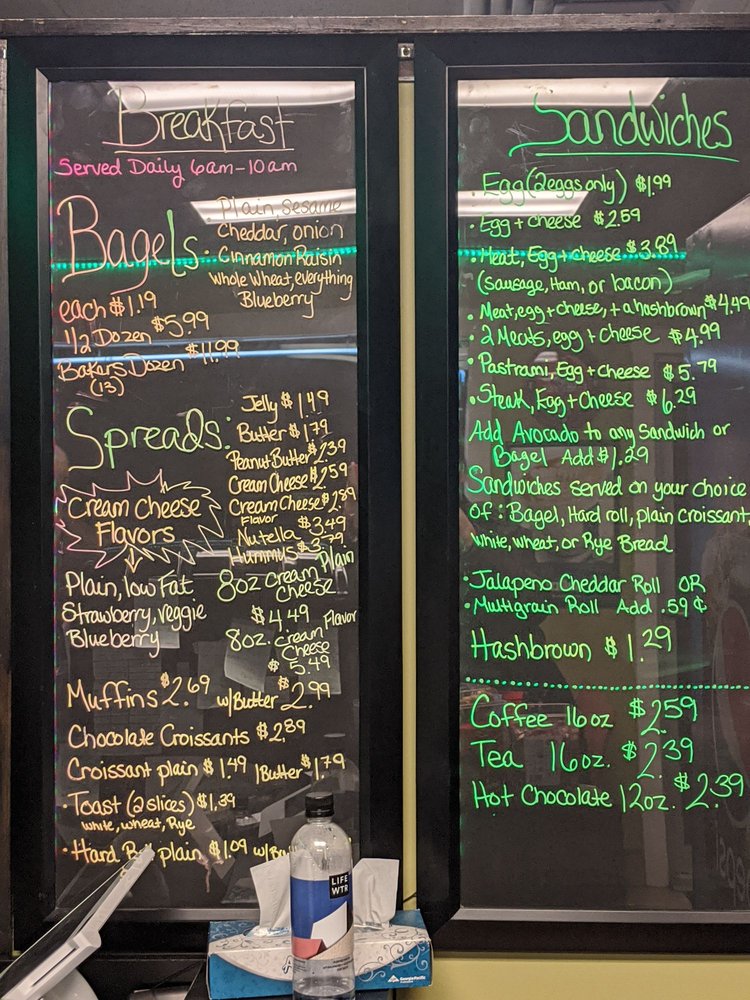 Breakfast
Served Daily 6am-10am
Bagels
• Plain, sesame
Cheddar, onion
Cinnamon Raisin
Whole Wheat, everything
Blueberry
each $1.19
1/2 Dozen $5.99
Bakers Dozen $11.99
(13)
Spreads:
Jelly $1.49
Butter $1.79
Peanut Butter $2.39
Cream Cheese $2.59
Cream Cheese $2.89
Flavor
Nutella $3.49
Hummus $3.79
Cream Cheese
Flavors
Plain, low Fat.
Strawberry, veggie
Blueberry
8oz Cream Plain
Cheese
$4.49
8oz. Cream Flavor
Cheese
$5.49
Muffins $2.69 w/Butter $2.99
Chocolate Croissants $2.89
Croissant plain $1.49 /Butter $1.79
• Toast (2 slices) $1.39
white, wheat, Rye
• Hard plain $1.09 w/
Sandwiches
• Egg (2 eggs only) $1.99
• Egg + cheese $2.59
• Meat, Egg + cheese $3.89
(sausage, Ham, or bacon)
• Meat, egg + cheese, + a hashbrown $4.49
• 2 Meats, egg + Cheese $4.99
• Pastrami, Egg + Cheese $5.79
• Steak, Egg + Cheese $6.29
Add Avocado to any Sandwich or
Bagel Add $1.29
Sandwiches served on your choice
Of: Bagel, Hard roll, plain Croissant
white, wheat, or Rye Bread
• Jalapeno Cheddar Roll OR
• Multigrain Roll Add .59¢
Hashbrown $1.29
Coffee 16oz $2.59
Tea 16oz. $2.39
Hot Chocolate 12oz. $2.39
LIFE
WTR
Georgia-Pacific